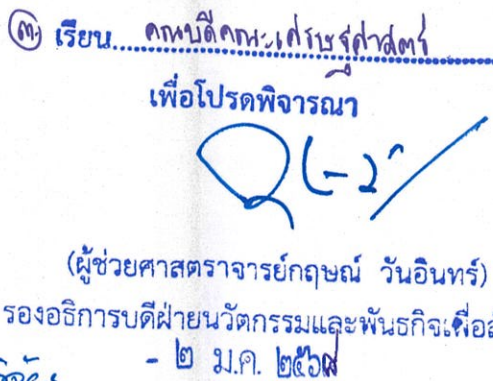 (๓) เรียน....คณบดีคณะเศรษฐศาสตร์
เพื่อโปรดพิจารณา
(ผู้ช่วยศาสตราจารย์กฤษณ์ วันอินทร์)
รองอธิการบดีฝ่ายนวัตกรรมและพันธกิจเพื่อ
- ๒ ม.ค. ๒๕๖๗